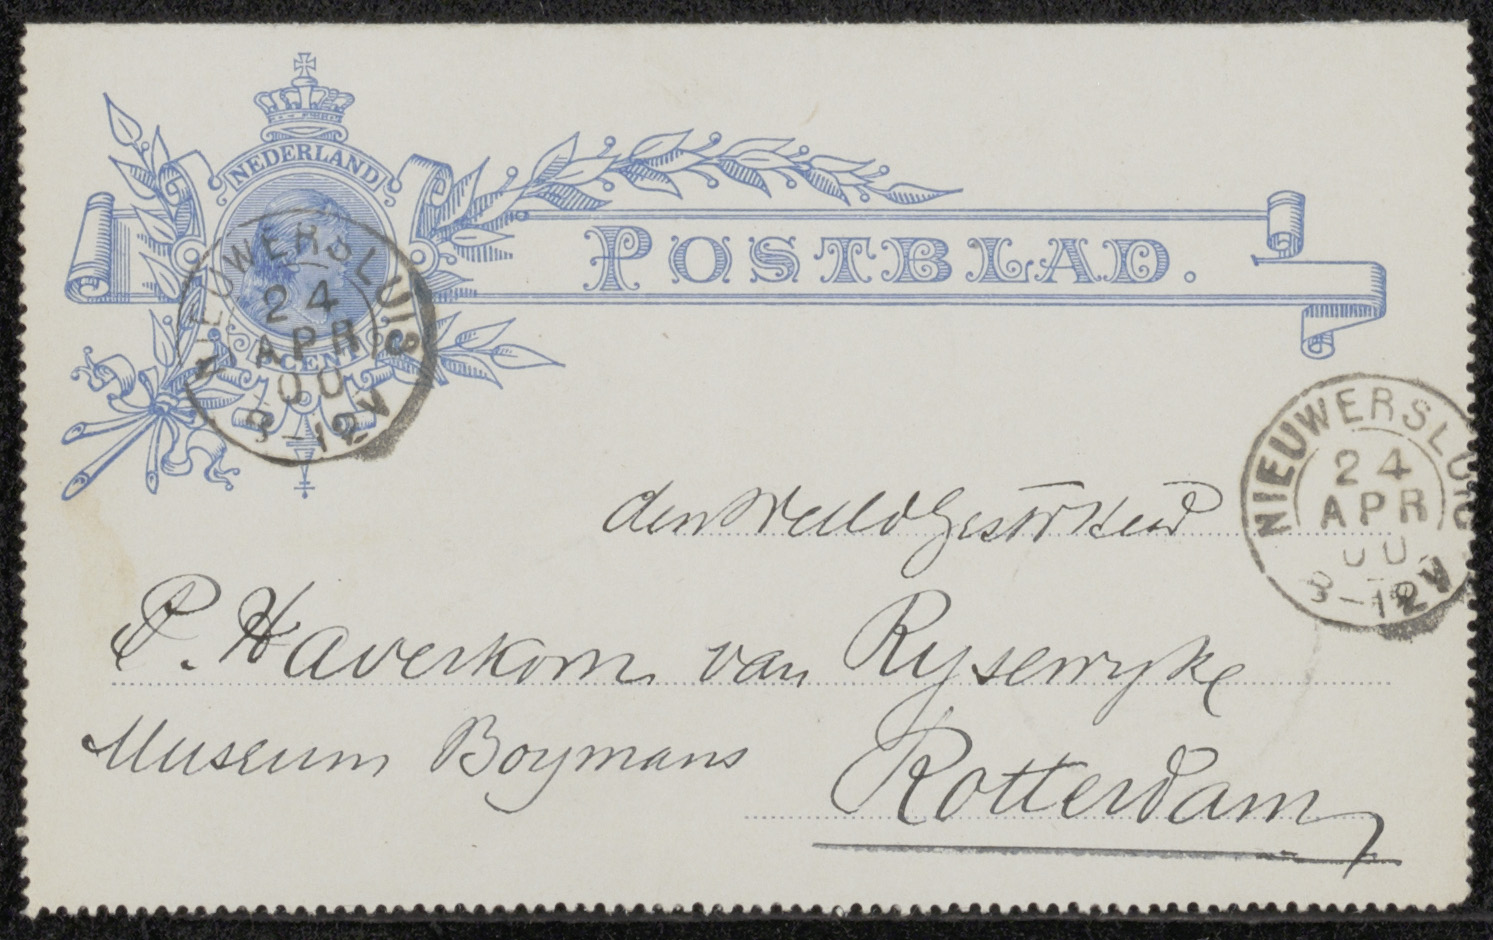 NEDERLAND
POSTBLAD.
CENT
NIEUWERSLUIS
24
APR
00
8-12V
NIEUWERSLUIS
24
APR
00
8-12V
den WelEdGestr Heer
P. Haverkorn van Rysewyke
Museum Boymans
Rotterdam